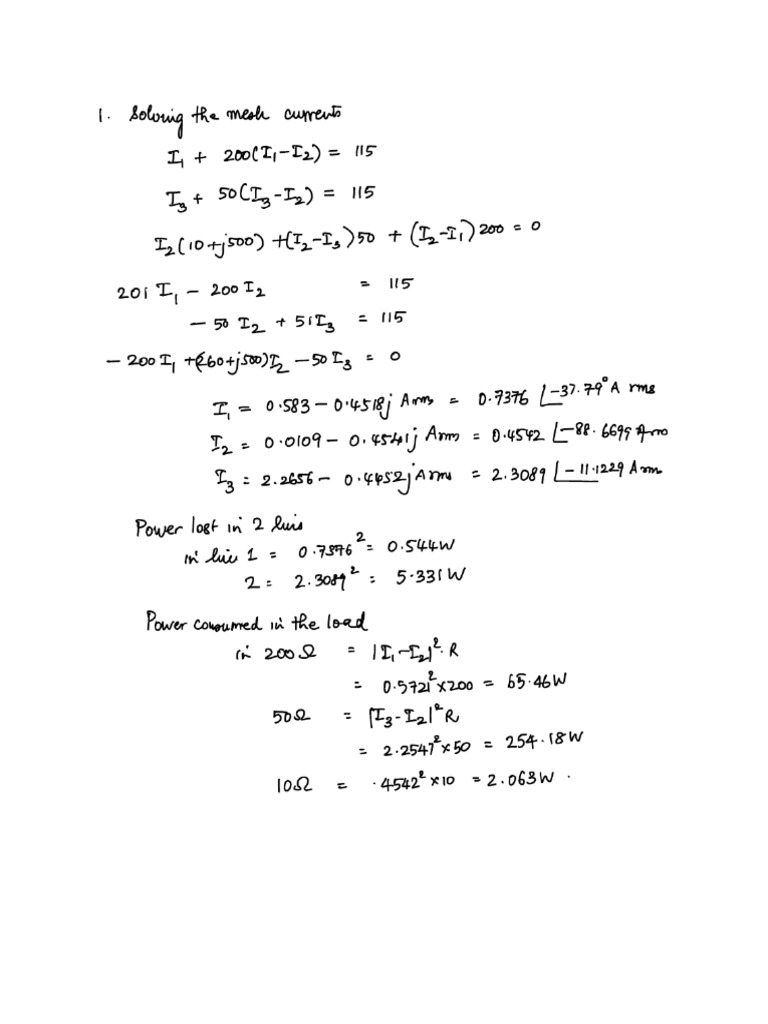 1. Solving the mesh currents
I₁ + 200(I₁-I₂) = 115
I₃ + 50(I₃-I₂) = 115
I₂(10+j500) +(I₂-I₃)50 + (I₂-I₁)200 = 0
201 I₁ - 200 I₂ = 115
- 50 I₂ + 51I₃ = 115
- 200 I₁ +(260+j500)I₂ - 50 I₃ = 0
I₁ = 0.583 - 0.4518j Arms = 0.7376 ∠-37.79° A rms
I₂ = 0.0109 - 0.4541j Arms = 0.4542 ∠-88.6699 Arms
I₃ = 2.2656 - 0.4452j Arms = 2.3089 ∠-11.1229 Arms
Power lost in 2 lines
in line 1 = 0.7376² = 0.544W
2 = 2.3089² = 5.331 W
Power consumed in the load
in 200Ω = |I₁-I₂|².R
= 0.572²×200 = 65.46W
50Ω = |I₃-I₂|²R
= 2.2547²×50 = 254.18W
10Ω = .4542²×10 = 2.063W.